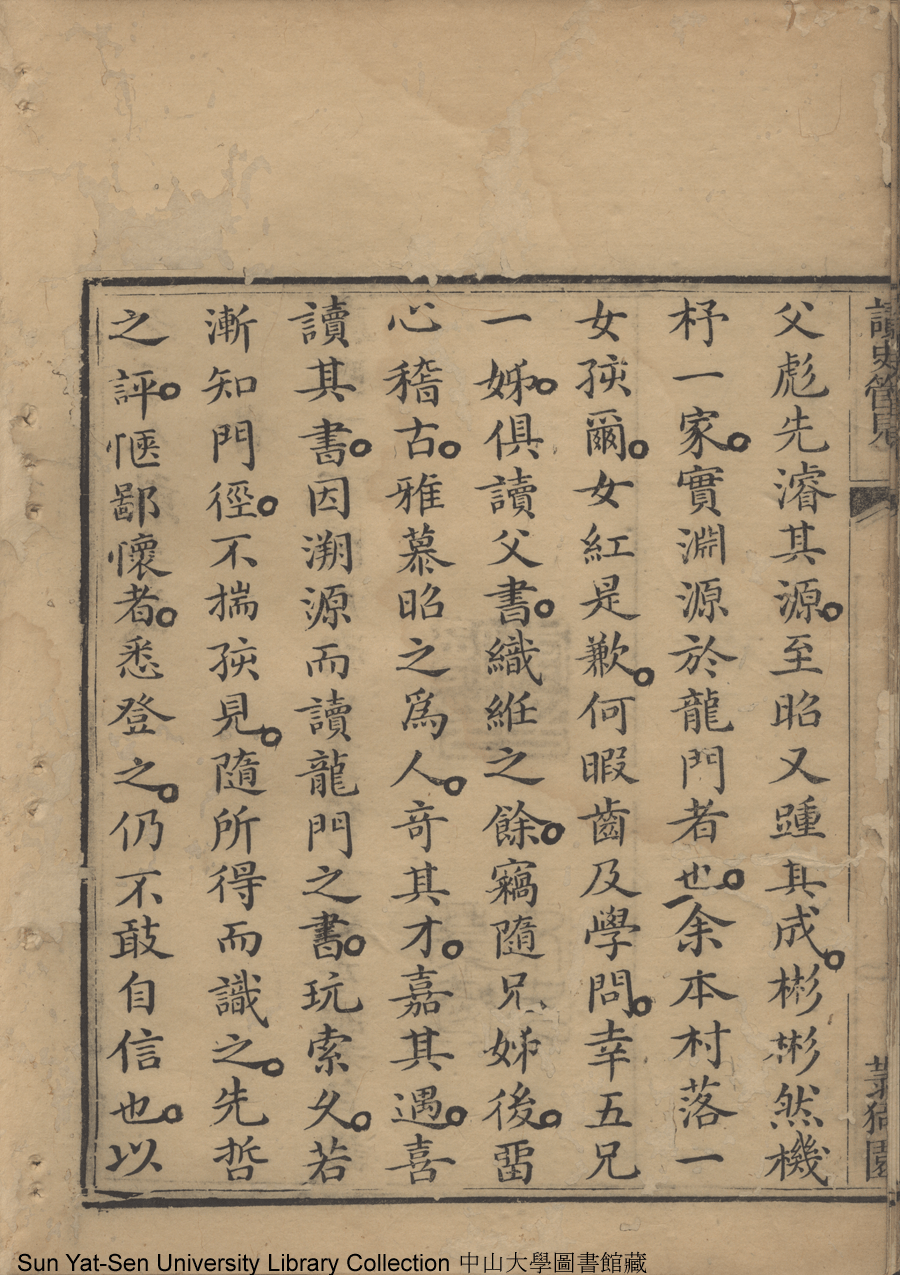 讀史管見
父彪先濬其源。至昭又踵其成。彬彬然機
杼一家。實淵源於龍門者也。余本村落一
女孩爾。女紅是歉。何暇齒及學問。幸五兄
一姊。俱讀父書。織絍之餘。竊隨兄姊後。畱
心稽古。雅慕昭之爲人。竒其才。嘉其遇。喜
讀其書。因溯源而讀龍門之書。玩索久。若
漸知門徑。不揣孩見。隨所得而識之。先哲
之評。愜鄙懷者。悉登之。仍不敢自信也。以
Sun Yat-Sen University Library Collection 中山大學圖書館藏